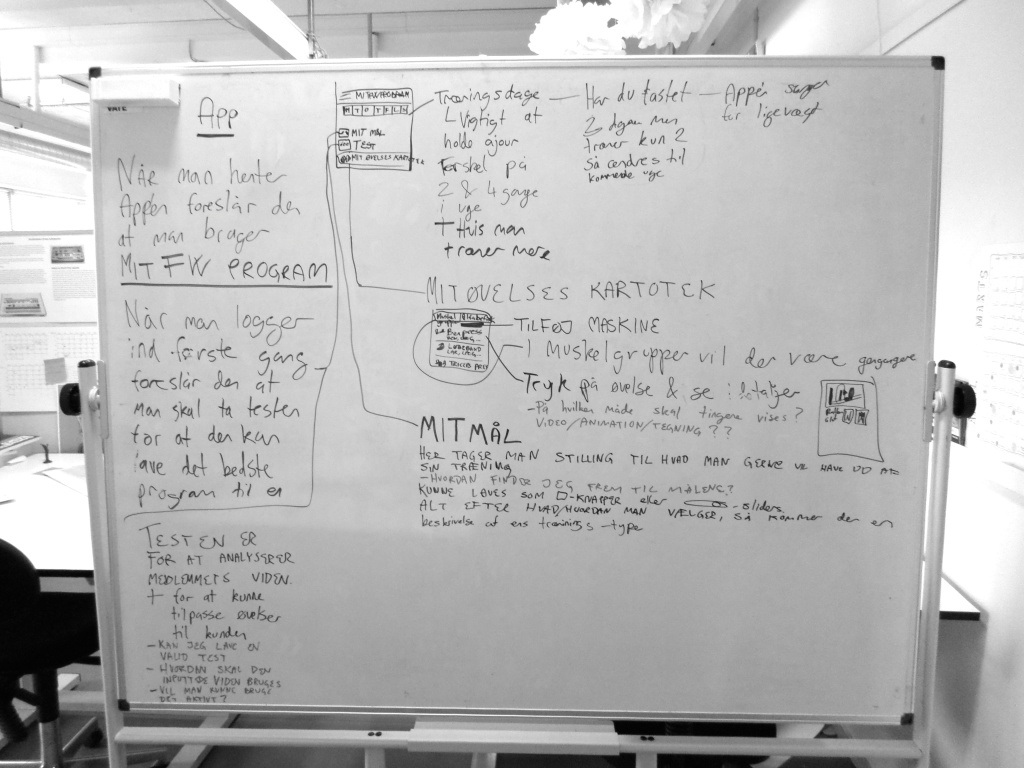 App
NÅR man henter
Appen foreslår den
at man bruger
MIT FW PROGRAM
Når man logger
ind første gang
foreslår den at
man skal ta testen
for at den kan
lave det bedste
program til en
TESTEN ER
FOR AT ANALYSERER
MEDLEMMETS VIDEN.
+ for at kunne
tilpasse øvelser
til kunden
- KAN JEG LAVE EN
VALID TEST
- HVORDAN SKAL DEN
VIDEN BRUGES
- VIL MAN KUNNE BRUGE
DET AKTIVT?
M T O T F L S
MIT MÅL
TEST
MIT ØVELSES KARTOTEK
Træningsdage
Vigtigt at
holde ajour
Forskel på
2 & 4 gange
i uge
+ Hvis man
træner mere
Har du tastet
3 dage men
træner kun 2
så ændres til
kommende uge
Appen sørger
for ligevægt
MIT ØVELSES KARTOTEK
TILFØJ MASKINE
I Muskelgrupper vil der være gengangere
Tryk på øvelse & se detaljer
- På hvilken måde skal tingene vises?
VIDEO/ANIMATION/TEGNING??
MIT MÅL
HER TAGER MAN STILLING TIL HVAD MAN GERNE VIL HAVE UD AF
SIN TRÆNING
- HVORDAN FINDER JEG FREM TIL MÅLENE?
KUNNE LAVES SOM -KNAPPER eller -sliders
ALT EFTER HVAD/HVORDAN MAN VÆLGER, SÅ KOMMER DER EN
beskrivelse af ens trænings-type
MARTS